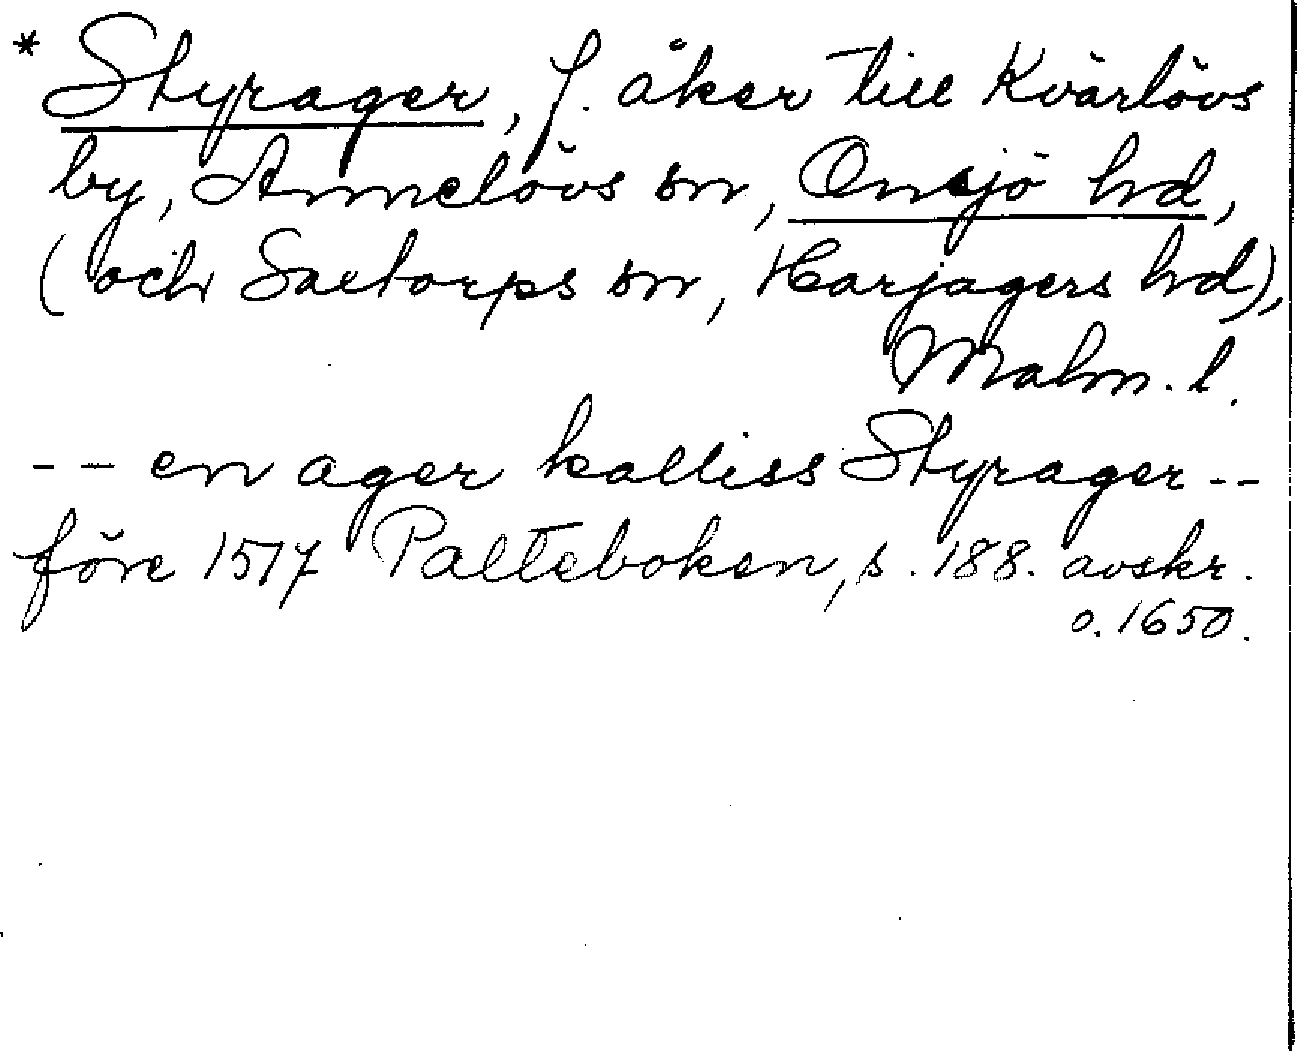 * Styrager, f. åker till Kvärlövs
by, Annelövs sn, Onsjö hd,
(och Saxtorps sn, Harjagers hd),
Malm. l.
-- en ager kalliss Styrager --
före 1517 Palteboken, s. 188. avskr.
o. 1650.